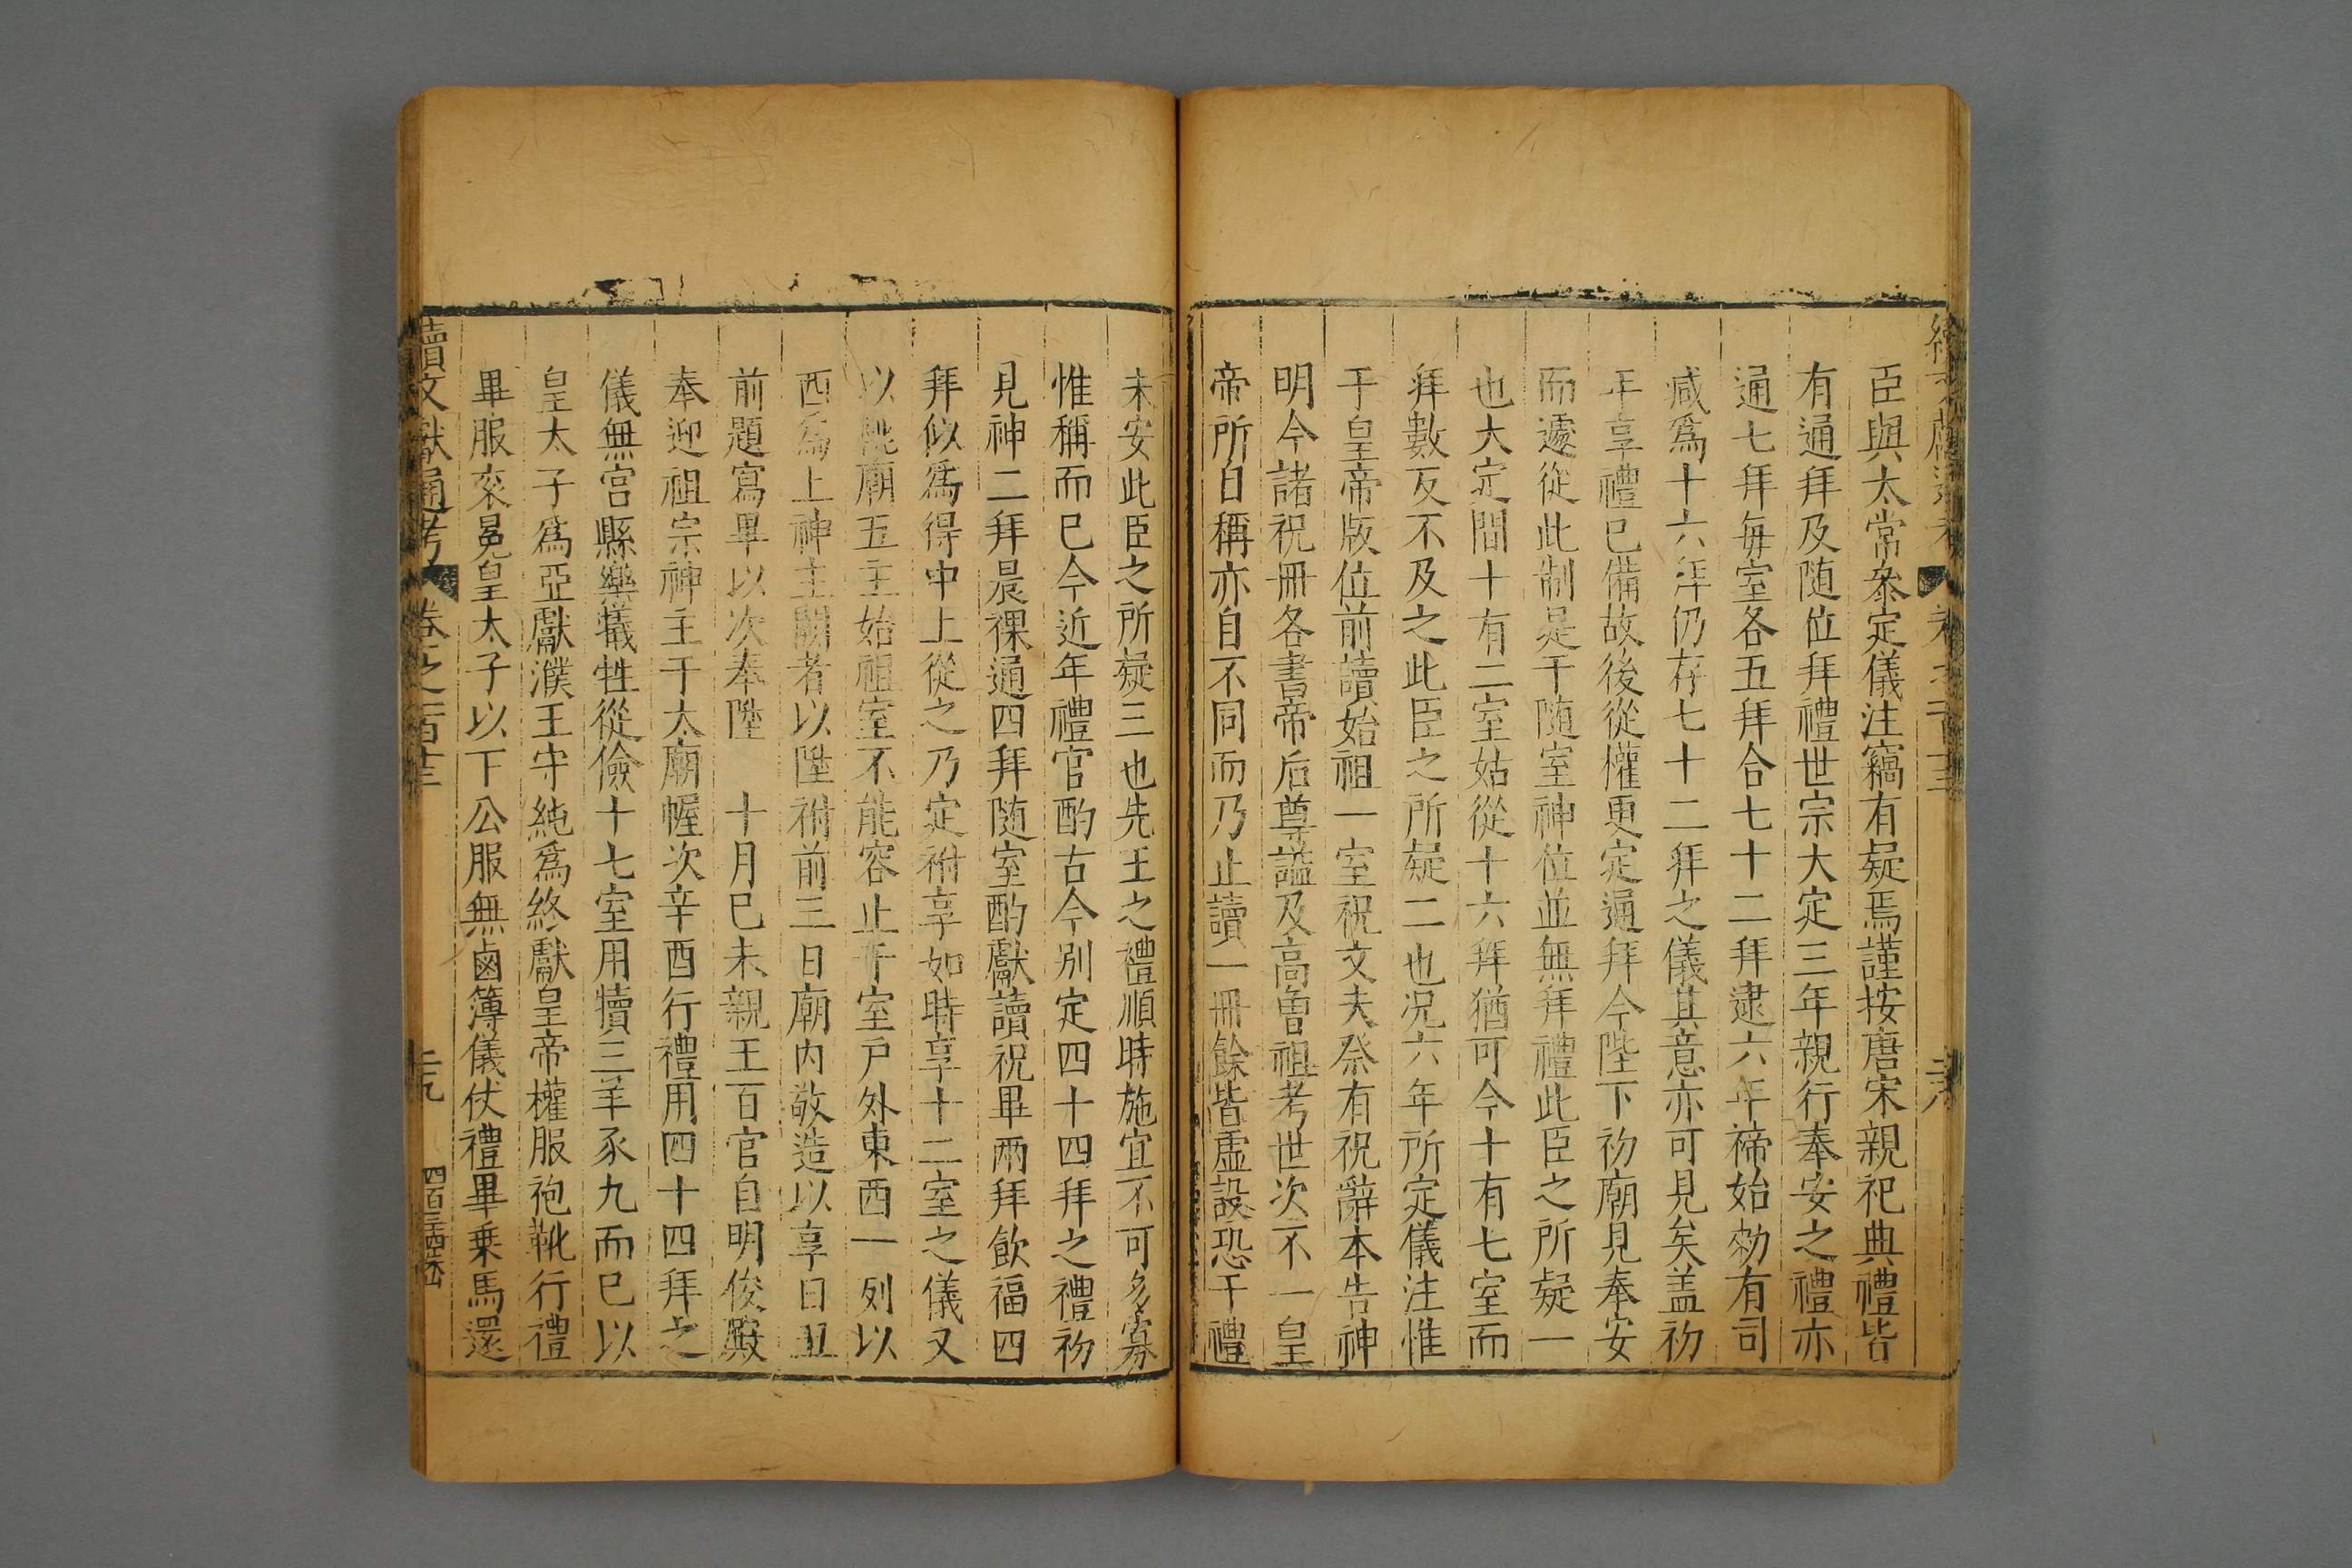 臣與太常叅定儀注竊有疑焉謹按唐宋親祀典禮皆
有通拜及随位拜禮世宗大定三年親行奉安之禮亦
通七拜毎室各五拜合七十二拜逮六年禘始勑有司
减爲十六拜仍存七十二拜之儀其意亦可見矣盖初
年享禮已備故後從權更定通拜今陛下初廟見奉安
而遽從此制是于随室神位並無拜禮此臣之所疑一
也大定間十有二室姑從十六拜猶可今十有七室而
拜數反不及之此臣之所疑二也况六年所定儀注惟
于皇帝版位前讀始祖一室祝文夫祭有祝辭本告神
明今諸祝冊各書帝后尊謚及高曽祖考世次不一皇
帝所自稱亦自不同而乃止讀一冊餘皆虛設恐于禮
未安此臣之所疑三也先王之禮順時施宜不可多寡
惟稱而已今近年禮官酌古今别定四十四拜之禮初
見神二拜晨祼通四拜随室酌獻讀祝畢兩拜飲福四
拜似爲得中上從之乃定祔享如時享十二室之儀又
以祧廟五主始祖室不能容止于室戶外東西一列以
西爲上神主闕者以陞祔前三日廟内敬造以享日丑
前題寫畢以次奉陞　十月巳未親王百官自明俊殿
奉迎祖宗神主于太廟幄次辛酉行禮用四十四拜之
儀無宫縣樂犧牲從儉十七室用犢三羊豕九而已以
皇太子爲亞獻濮王守純爲終獻皇帝權服袍靴行禮
畢服衮冕皇太子以下公服無鹵簿儀仗禮畢乗馬還
續文獻通考
卷之一百十三
二十九